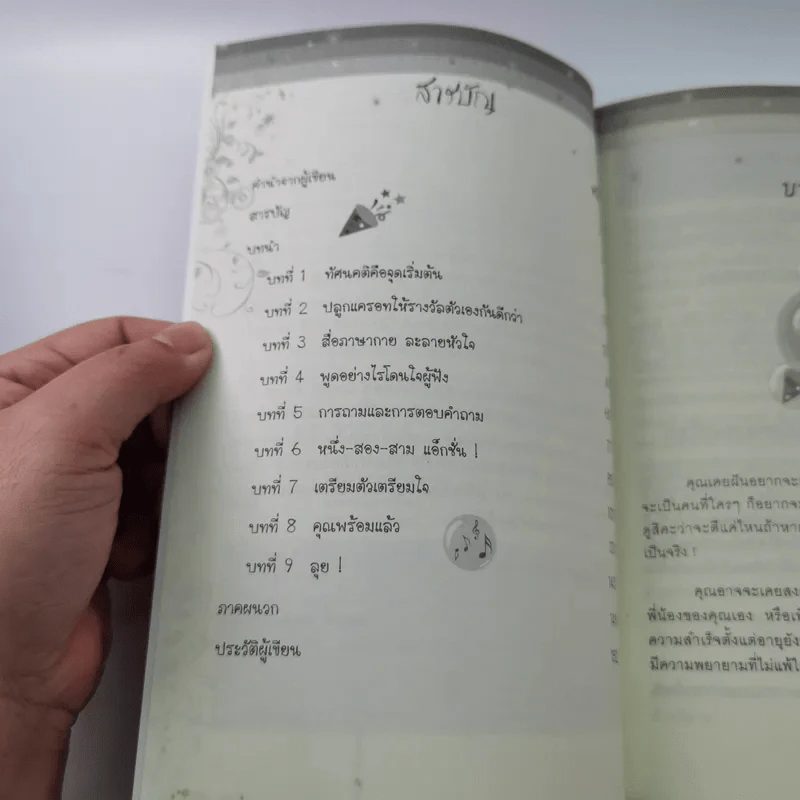 สารบัญ
คำนำจากผู้เขียน
สารบัญ
บทนำ
บทที่ 1 ทัศนคติคือจุดเริ่มต้น
บทที่ 2 ปลูกแครอทให้รางวัลตัวเองกันดีกว่า
บทที่ 3 สื่อภาษากาย ละลายหัวใจ
บทที่ 4 พูดอย่างไรโดนใจผู้ฟัง
บทที่ 5 การถามและการตอบคำถาม
บทที่ 6 หนึ่ง-สอง-สาม แอ็กชั่น !
บทที่ 7 เตรียมตัวเตรียมใจ
บทที่ 8 คุณพร้อมแล้ว
บทที่ 9 ลุย !
ภาคผนวก
ประวัติผู้เขียน
คุณเคยฝันอยากจะ
จะเป็นคนที่ใครๆ ก็อยากจะ
ดูสิคะว่าจะดีแค่ไหนถ้าหา
เป็นจริง !
คุณอาจจะเคยสง
พี่น้องของคุณเอง หรือ
ความสำเร็จตั้งแต่อายุยัง
มีความพยายามที่ไม่แพ้